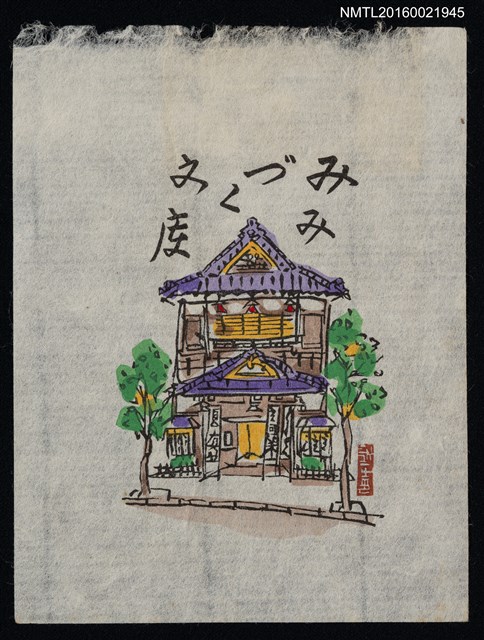 NMTL20160021945
みみづく
文庫